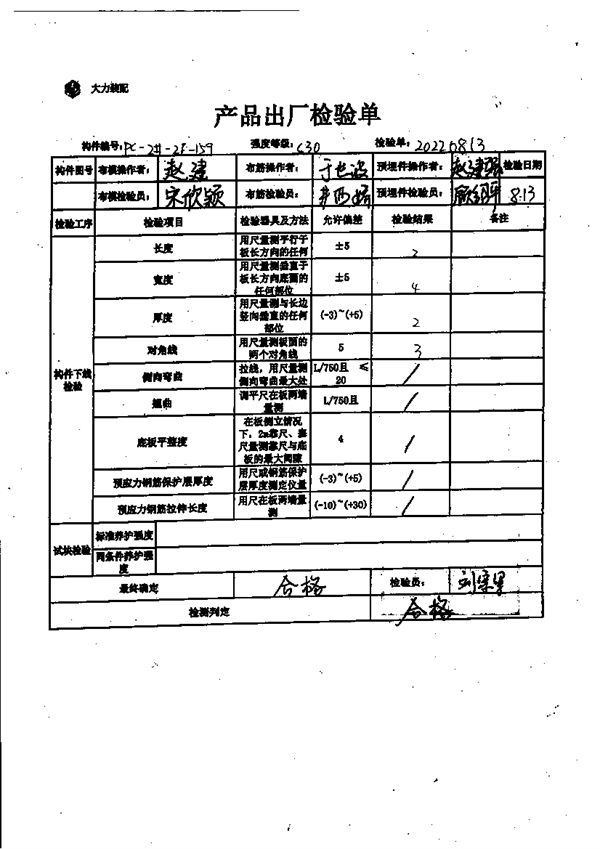 大力装配
产品出厂检验单
构件编号：PC-2#-2F-159 强度等级：C30 检验单：20220813
构件图号 布模操作者：赵建 布筋操作者： 预埋件操作者：赵建强 检验日期
布模检验员：宋欣颖 布筋检验员： 预埋件检验员： 8.13
检验工序 检验项目 检验器具及方法 允许偏差 检验结果 备注
构件下线检验
长度 用尺量测平行于板长方向的任何 ±5 2
宽度 用尺量测垂直于板长方向底面的任何部位 ±5 4
厚度 用尺量测与长边竖向垂直的任何部位 (-3)~(+5) 2
对角线 用尺量测板面的两个对角线 5 3
侧向弯曲 拉线，用尺量测侧向弯曲最大处 L/750且 ≤20 /
翘曲 调平尺在板两端量测 L/750且 /
底板平整度 在板侧立情况下，2m靠尺、塞尺量测靠尺与底板的最大间隙 4 /
预应力钢筋保护层厚度 用尺或钢筋保护层厚度测定仪量 (-3)~(+5) /
预应力钢筋拉伸长度 用尺在板两端量测 (-10)~(+30) /
试块检验 标准养护强度
同条件养护强度
最终确定 合格 检验员：
检测判定 合格